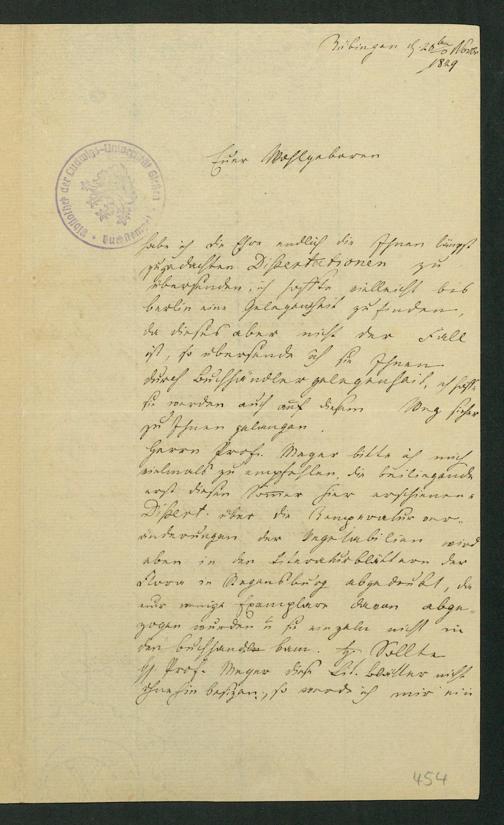 Tübingen d 20ten Novbr.
1829
Euer Wohlgeboren
habe ich die Ehre endlich die Ihnen längst
zugedachten Dissertationen zu
übersenden, ich hoffte vielleicht bis
Berlin eine Gelegenheit zu finden,
da dieses aber nicht der Fall
ist, so übersende ich sie Ihnen
durch Buchhändlergelegenheit, ich hoffe
sie werden auch auf diesem Weg sicher
zu Ihnen gelangen.
Herrn Prof. Meyer bitte ich mich
vielmals zu empfehlen, die beiliegende
erst diesen Sommer hier erschienene
Dissert. über die Temperaturver-
änderungen der Vegetabilien wird
eben in den Literaturblättern der
Flora in Regensburg abgedruckt, da
nur wenige Exemplare davon abge-
zogen wurden u sie einzeln nicht in
den Buchhandel kam. Sollte
H Prof. Meyer diese Lit. Blätter nicht
ohnehin besizen, so werde ich mir ein
Bibliothek der Ludwigs-Universität Giessen
454